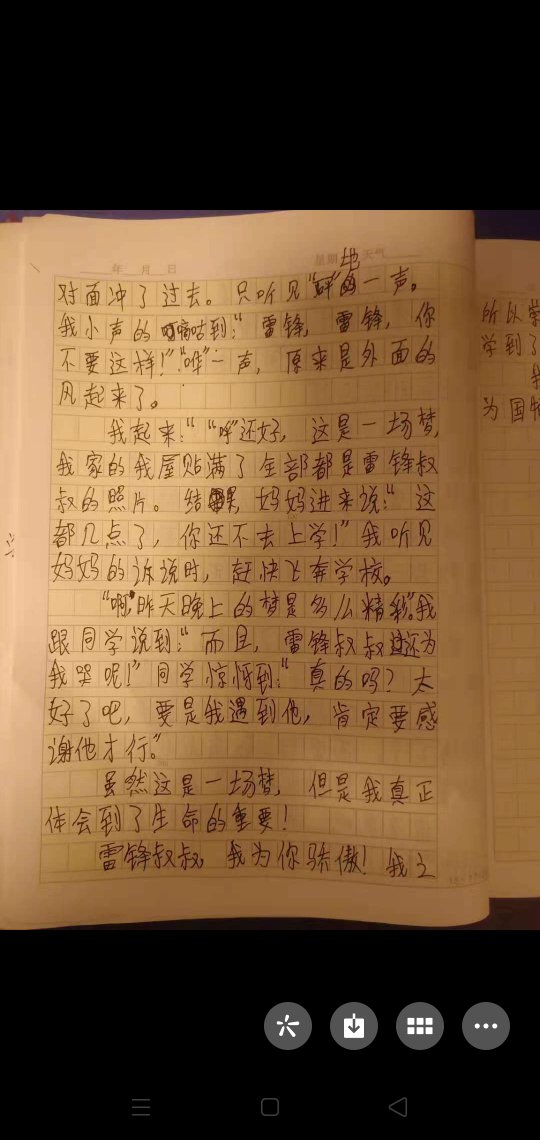 年 月 日 星期 天气
地
对面冲了过去。只听见"砰"的一声。
我小声的嘀咕到:"雷锋,雷锋,你
不要这样!""咋"一声,原来是外面的
风起来了。
我起来:"“呼”还好,这是一场梦,
我家的我屋贴满了全部都是雷锋叔
叔的照片。结果,妈妈进来说:"这
都几点了,你还不去上学!"我听见
妈妈的诉说时,赶快飞奔学校。
"啊"昨天晚上的梦是多么精彩"。我
跟同学说到:"而且,雷锋叔叔还为
我哭呢!"同学惊讶到:"真的吗?太
好了吧,要是我遇到他,肯定要感
谢他才行。"
虽然这是一场梦,但是我真正
体会到了生命的重要!
雷锋叔叔,我为你骄傲!我之
所以学
学到了
我
为国牺